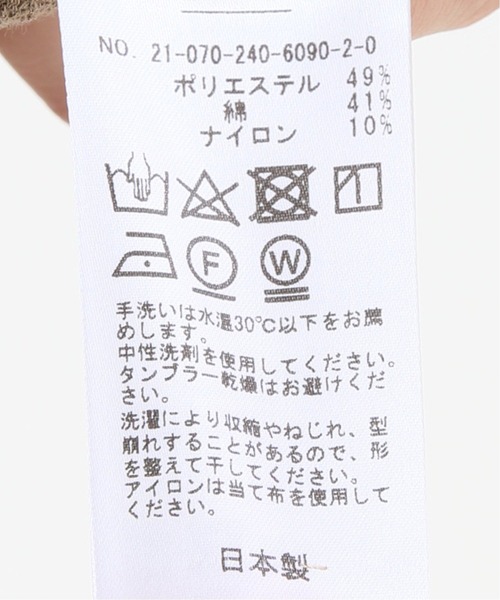 NO. 21-070-240-6090-2-0
ポリエステル 49%
綿 41%
ナイロン 10%
F W
手洗いは水温30℃以下をお薦
めします。
中性洗剤を使用してください。
タンブラー乾燥はお避けくだ
さい。
洗濯により収縮やねじれ、型
崩れすることがあるので、形
を整えて干してください。
アイロンは当て布を使用して
ください。
日本製